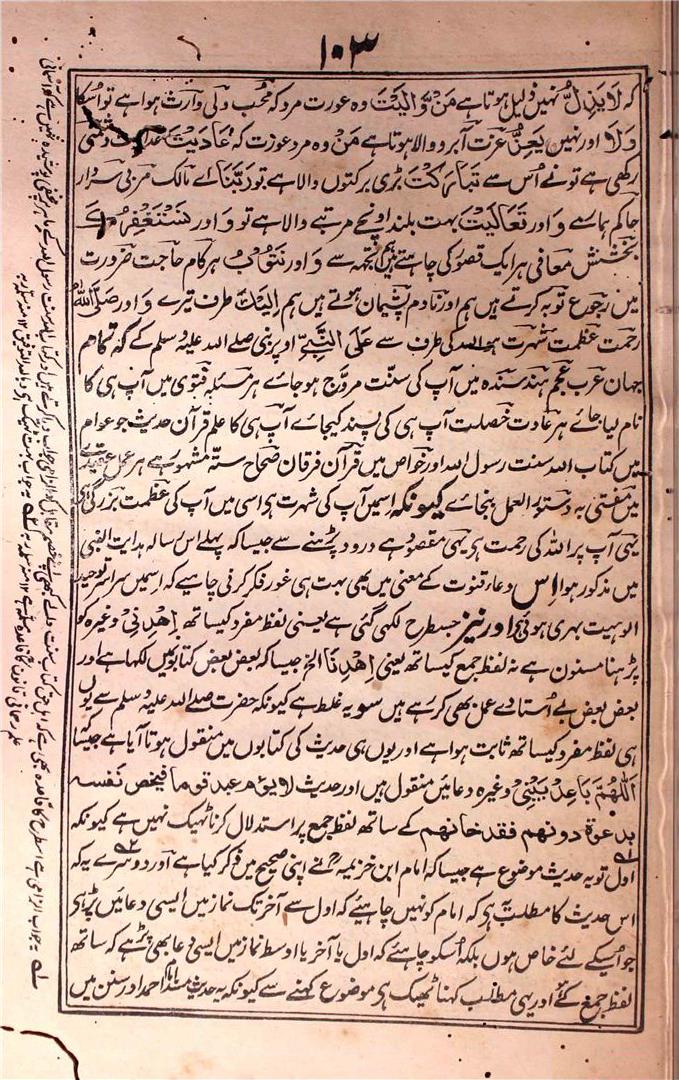 ۱۰۳
کہ لَا يَذِلُّ نہیں ذلیل ہوتا ہے مَنْ وَّالَيْتَ وہ عورت مرد کہ محب و ولی وارث ہوا ہے تو اُسکا
وَلَا اور نہیں يَعِزُّ عزت آبرو والا ہوتا ہے مَنْ وہ مرد عورت کہ عَادَيْتَ عداوت دشمنی
رکھی ہے تو نے اُس سے تَبَارَكْتَ بڑی برکتوں والا ہے تو رَبَّنَا اے مالک مربی سردار
حاکم ہمارے وَ اور تَعَالَيْتَ بہت بلند اونچے مرتبے والا ہے تو وَ اور نَسْتَغْفِرُكَ
بخشش معافی ہر ایک قصور کی چاہتے ہیں ہم تجھہ سے وَ اور نَتُوْبُ ہر کام حاجت ضرورت
میں رجوع توبہ کرتے ہیں ہم اور نادم پشیمان ہوتے ہیں ہم اِلَيْكَ طرف تیرے وَ اور صَلَّى اللهُ
رحمت عظمت شہرت اللہ کی طرف سے عَلَى النَّبِيِّ اوپر نبی صلے اللہ علیہ وسلم کے کہ تمام
جہان عرب عجم ہند سندہ میں آپ کی سنت مروّج ہو جائے ہر مسئلہ فتوی میں آپ ہی کا
نام لیا جائے ہر عادت خصلت آپ ہی کی پسند کیجائے آپ ہی کا علم قرآن حدیث جو عوام
میں کتاب اللہ سنت رسول اللہ اور خواص میں قرآن فرقان صحاح ستہ مشہور ہے ہر عمل عقیدے
میں مفتی بہ دستور العمل بنجائے کیونکہ اسمیں آپ کی شہرت ہی اسی میں آپ کی عظمت بزرگی ہی
یہی آپ پر اللہ کی رحمت ہی یہی مقصود ہے درود پڑہنے سے جیسا کہ پہلے اس رسالہ ہدایت النبی
میں مذکور ہوا اِس دعاء قنوت کے معنی میں بھی بہت ہی غور فکر کرنی چاہیے کہ اسمیں سراسر توحید
الوہیت بہری ہوئی ہے اور نیز جسطرح لکھی گئی ہے یعنی لفظ مفرد کیساتھ اِهْدِنِيْ وغیرہ کو
پڑہنا مسنون ہے نہ لفظ جمع کیساتھ یعنی اِهْدِنَا الخ جیسا کہ بعض بعض کتابوں میں لکھا ہے اور
بعض بعض بے اُستادے عمل بھی کر رہے ہیں سو یہ غلط ہے کیونکہ حضرت صلے اللہ علیہ وسلم سے یوں
ہی لفظ مفرد کیساتھ ثابت ہوا ہے اور یوں ہی حدیث کی کتابوں میں منقول ہوتا آیا ہے جیسا
اَللّٰهُمَّ بَاعِدْ بَيْنِيْ وغیرہ دعائیں منقول ہیں اور حدیث لا يؤم عبد قوما فيخص نفسه
بدعوة دونهم فقد خانهم کے ساتھ لفظ جمع پر استدلال کرنا ٹھیک نہیں ہے کیونکہ
اول تو یہ حدیث موضوع ہے جیسا کہ امام ابن خزیمہ رح نے اپنی صحیح میں ذکر کیا ہے اور دوسرے یہ کہ
اس حدیث کا مطلب یہ ہی کہ امام کو نہیں چاہیئے کہ اول سے آخر تک نماز میں ایسی دعائیں پڑہی
جو اُسیکے لئے خاص ہوں بلکہ اُسکو چاہئے کہ اول یا آخر یا اوسط نماز میں ایسی دعا بھی پڑہے کہ ساتھ
لفظ جمع کے ہو اور یہی مطلب کہنا ٹھیک ہی موضوع کہنے سے کیونکہ یہ حدیث مسند امام احمد اور سنن میں